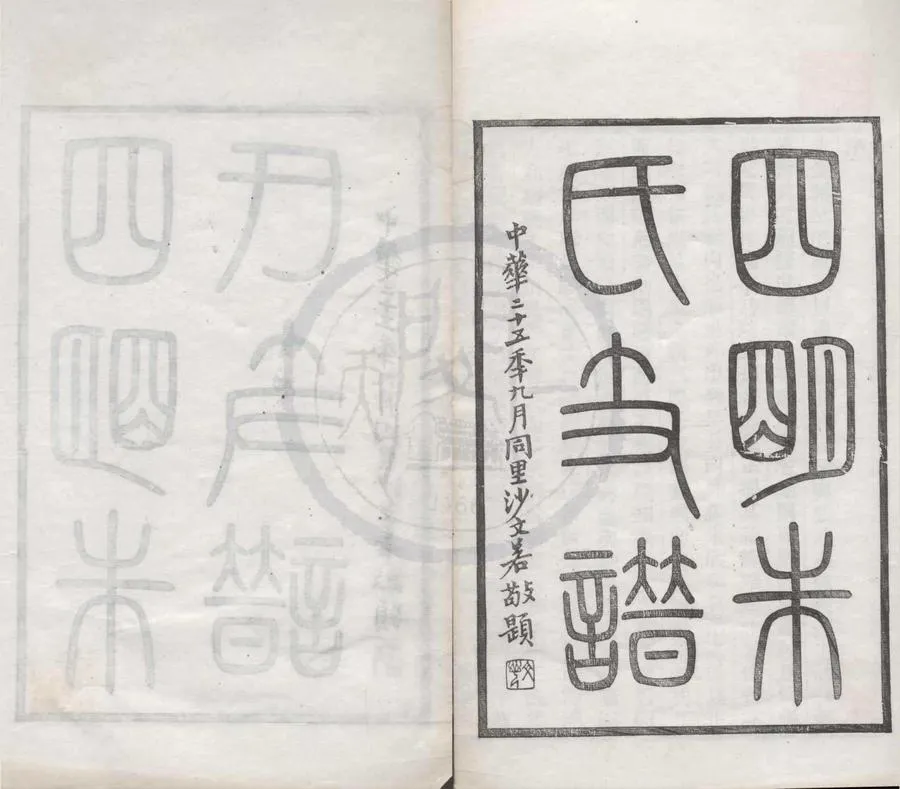 四明朱
氏支譜
中華二十五季九月同里沙文若敬題